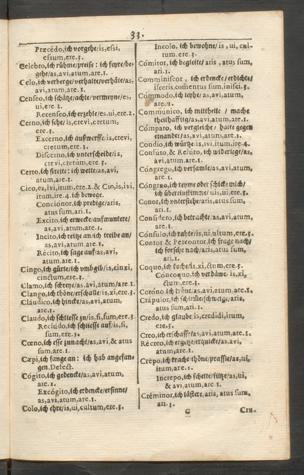 33.
Præcédo, ich vorgehe/is, essi,
essum, ere.3.
Célebro, ich rühme/preise: ich feyre/be-
gehe/as, avi, atum, are.1.
Celo, ich verberge/verhalte/verhäle/as,
avi, atum, are.1.
Censeo, ich schätze/achte/vermeyne/es,
ui, ere.2.
Recenseo, ich erzehle/es, ui, ere.2.
Cerno, ich sehe/is, crevi, cretum,
ere.3.
Excerno, ich außwerffe/is, crevi,
cretum, ere.3.
Discerno, ich unterscheide/is,
crevi, cretum, ere.3.
Certo, ich streite: ich wette/as, avi,
atum, are.1.
Cieo, es, ivi, itum, ere.2. & Cio, is, ivi,
itum, ire.4. ich bewege.
Conciónor, ich predige/aris,
atus sum, ari.1.
Éxcito, ich erwecke/auffmuntere/
as, avi, atum, are.1.
Íncito, ich reitze an/ich treibe an/
as, avi, atum, are.1.
Récito, ich sage auff/as, avi,
atum, are.1.
Cingo, ich gürte/ich umbgib/is, cinxi,
cinctum, ere.3.
Clamo, ich schreye/as, avi, atum, are.1.
Clango, ich thöne/erschalle/is, xi, ere.3.
Cláudico, ich hincke/as, avi, atum,
are.1.
Claudo, ich schliesse zu/is, si, sum, ere.3.
Reclúdo, ich schliesse auff/is, si,
sum, ere.3.
Cœno, ich esse zu nacht/as, avi, & atus
sum, are.1.
Cœpi, ich fange an: ich hab angefan-
gen. Defect.
Cógito, ich gedencke/as, avi, atum,
are.1.
Excógito, ich erdencke/ersinne/
as, avi, atum, are.1.
Colo, ich ehre/is, ui, cultum, ere.3.
Íncolo, ich bewohne/is, ui, cul-
tum, ere.3.
Cómitor, ich begleite/aris, atus sum,
ari.1.
Comminíscor, ich erdencke/erdichte/
isceris, commentus sum, inisci.3.
Cómmodo, ich leyhe/as, avi, atum,
are.1.
Commúnico, ich mittheile/mache
theilhafftig/as, avi, atum, are.1.
Cómparo, ich vergleiche/halte gegen
einander/as, avi, atum, are.1.
Condio, ich würtze/is, ivi, itum, ire.4.
Confúto, & Refúto, ich widerlege/as,
avi, atum, are.1.
Cóngrego, ich versamle/as, avi, atum,
are.1.
Cóngruo, ich reyme oder schicke mich/
ich übereinstimme/is, ui, ere.3.
Conor, ich unterstehe/aris, atus sum,
ari.1.
Consídero, ich betrachte/as, avi, atum,
are.1.
Cónsulo, ich rahte/is, ui, ultum, ere.3.
Contor & Percontor, ich frage nach/
ich forsche nach/aris, atus sum,
ari.1.
Coquo, ich koche/is, xi, ctum, ere.3.
Cóncoquo, ich verdäwe/is, xi,
ctum, ere.3.
Corono, ich kröne/as, avi, atum, are.1.
Creo, ich erschaffe/as, avi, atum, are.1.
Récreo, ich ergetze/erquicke/as, avi,
atum, are.1.
Increpo, ich schelte/
& avi, atum, are.1.
Críminor, ich lästere, aris, atus sum,
ari.1.
G
Cru.